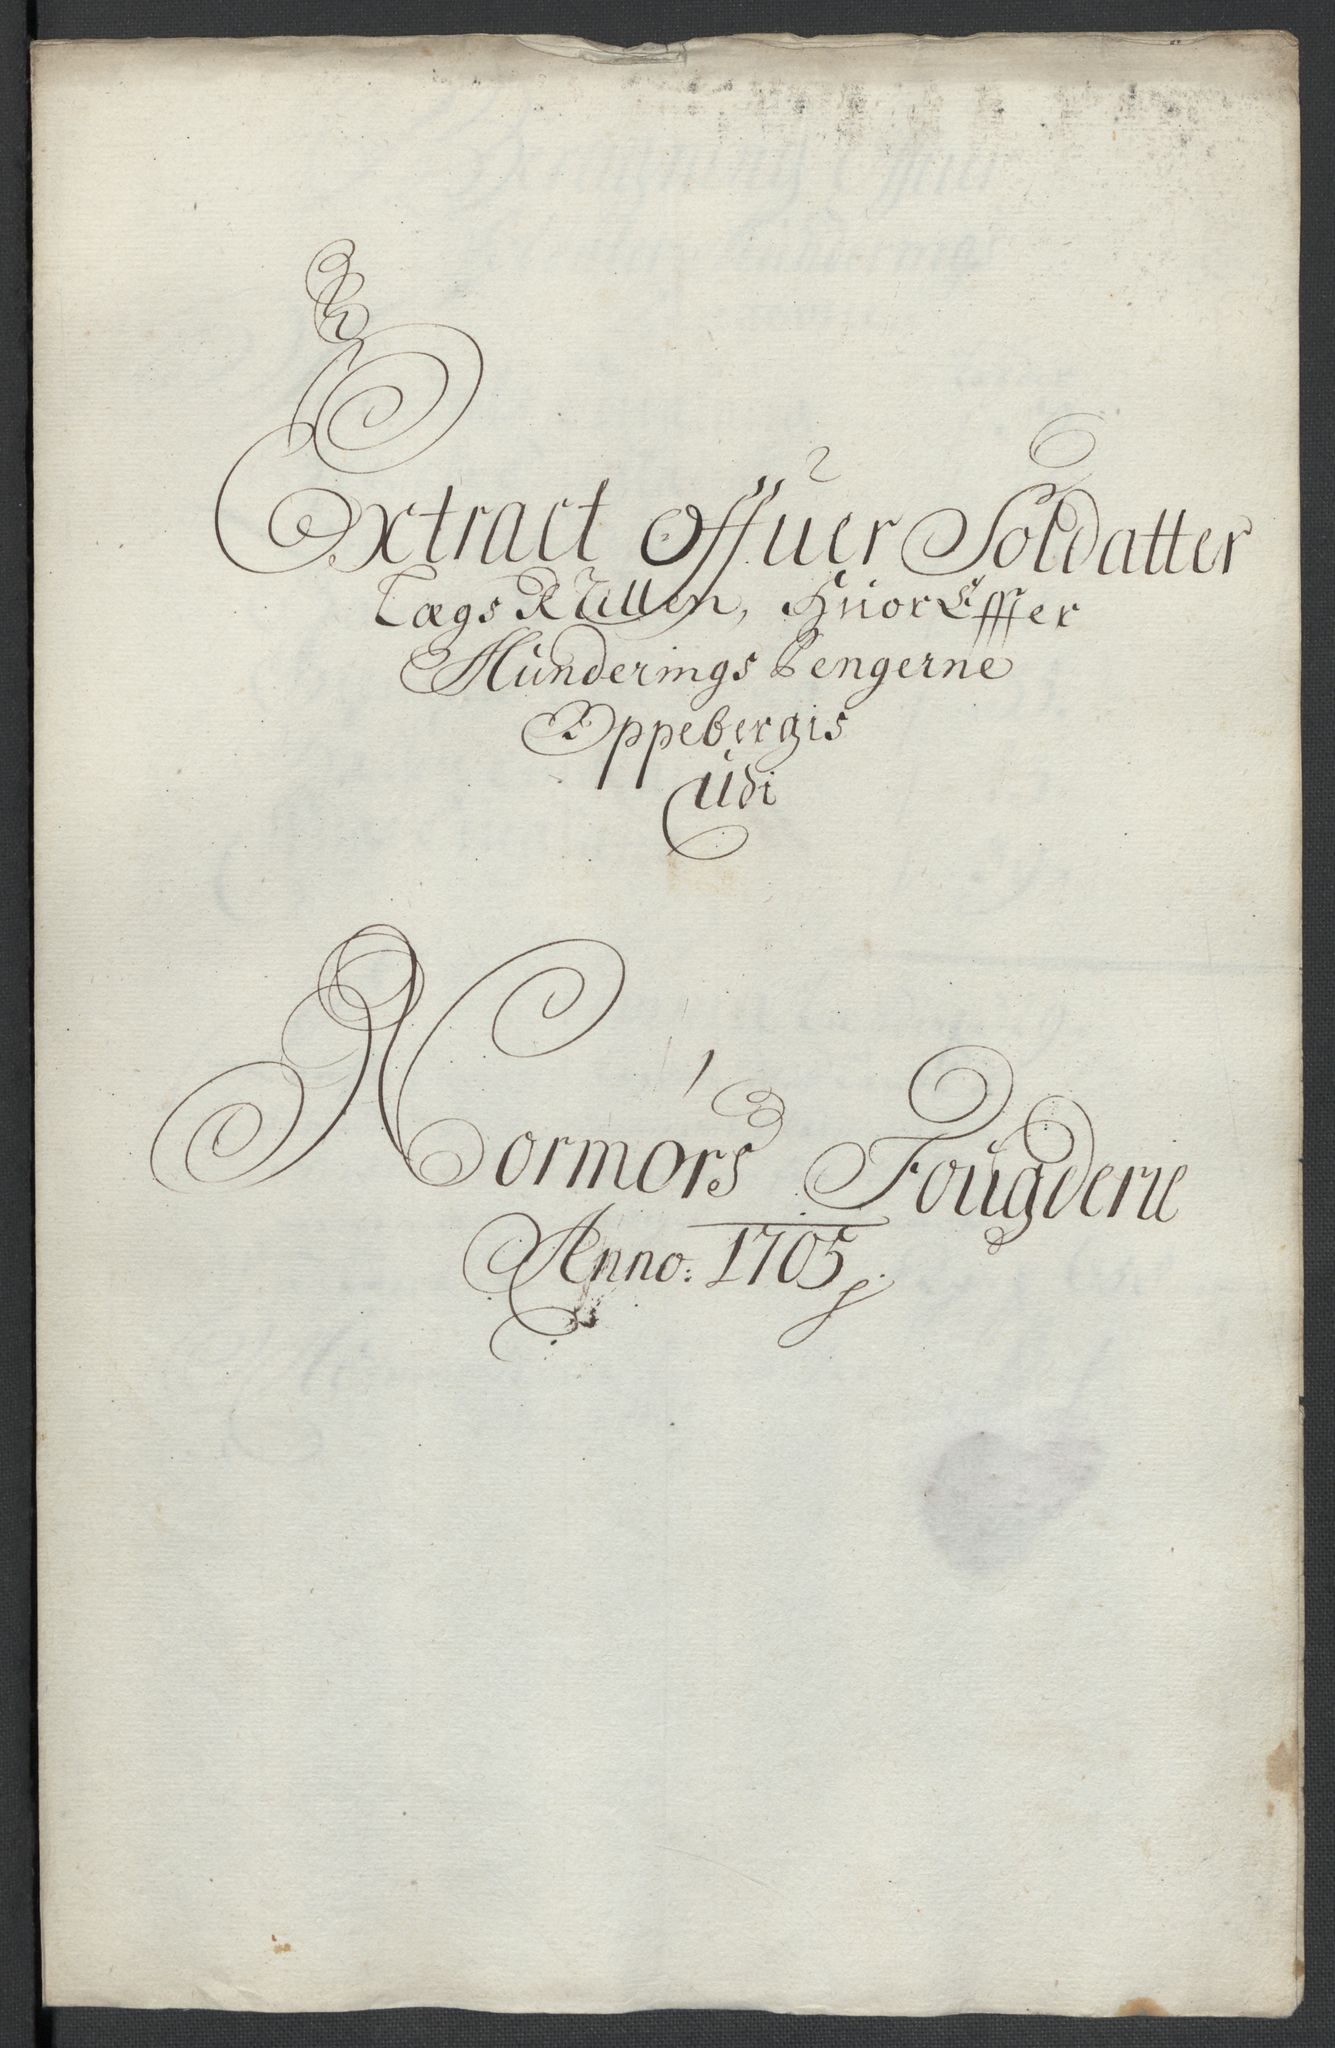 Extract offuer Soldatter
Lægs Rullen, HuorEffter
Munderings Pengerne
Oppebergis
Udi
Normørs Fougderie
Anno: 1705